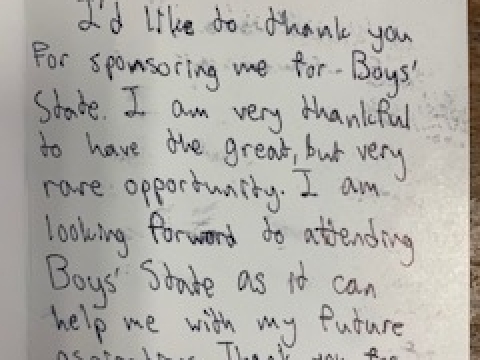 I'd like to thank you
for sponsoring me for Boys'
State. I am very thankful
to have the great, but very
rare opportunity. I am
looking forward to attending
Boys' State as it can
help me with my future
Thank you for